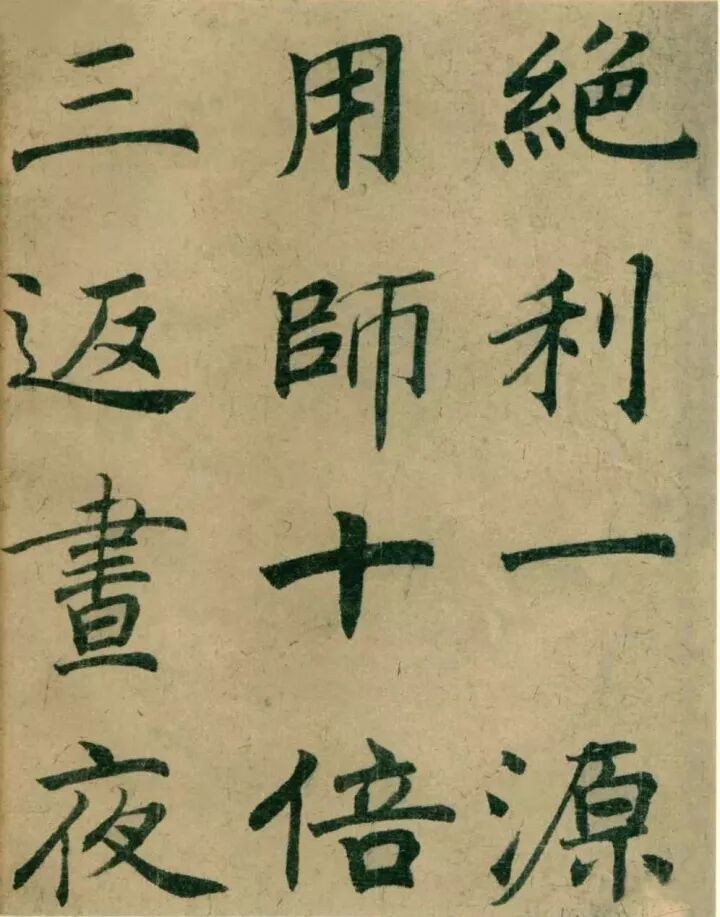 絶利一源
用師十倍
三返晝夜